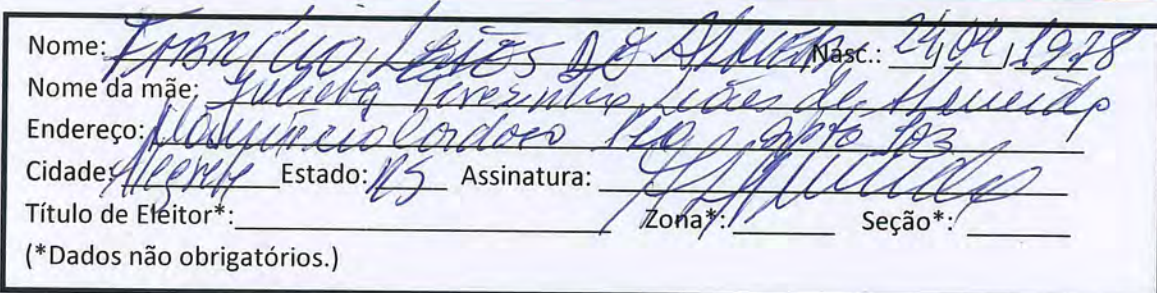 Nome: Fabrício Leães de Almeida Nasc.: 24/04/1978
Nome da mãe: Julieta Teresinha Leães de Almeida
Endereço: Cardoso apto 103
Cidade: Alegrete Estado: RS Assinatura:
Título de Eleitor*: Zona*: Seção*:
(*Dados não obrigatórios.)